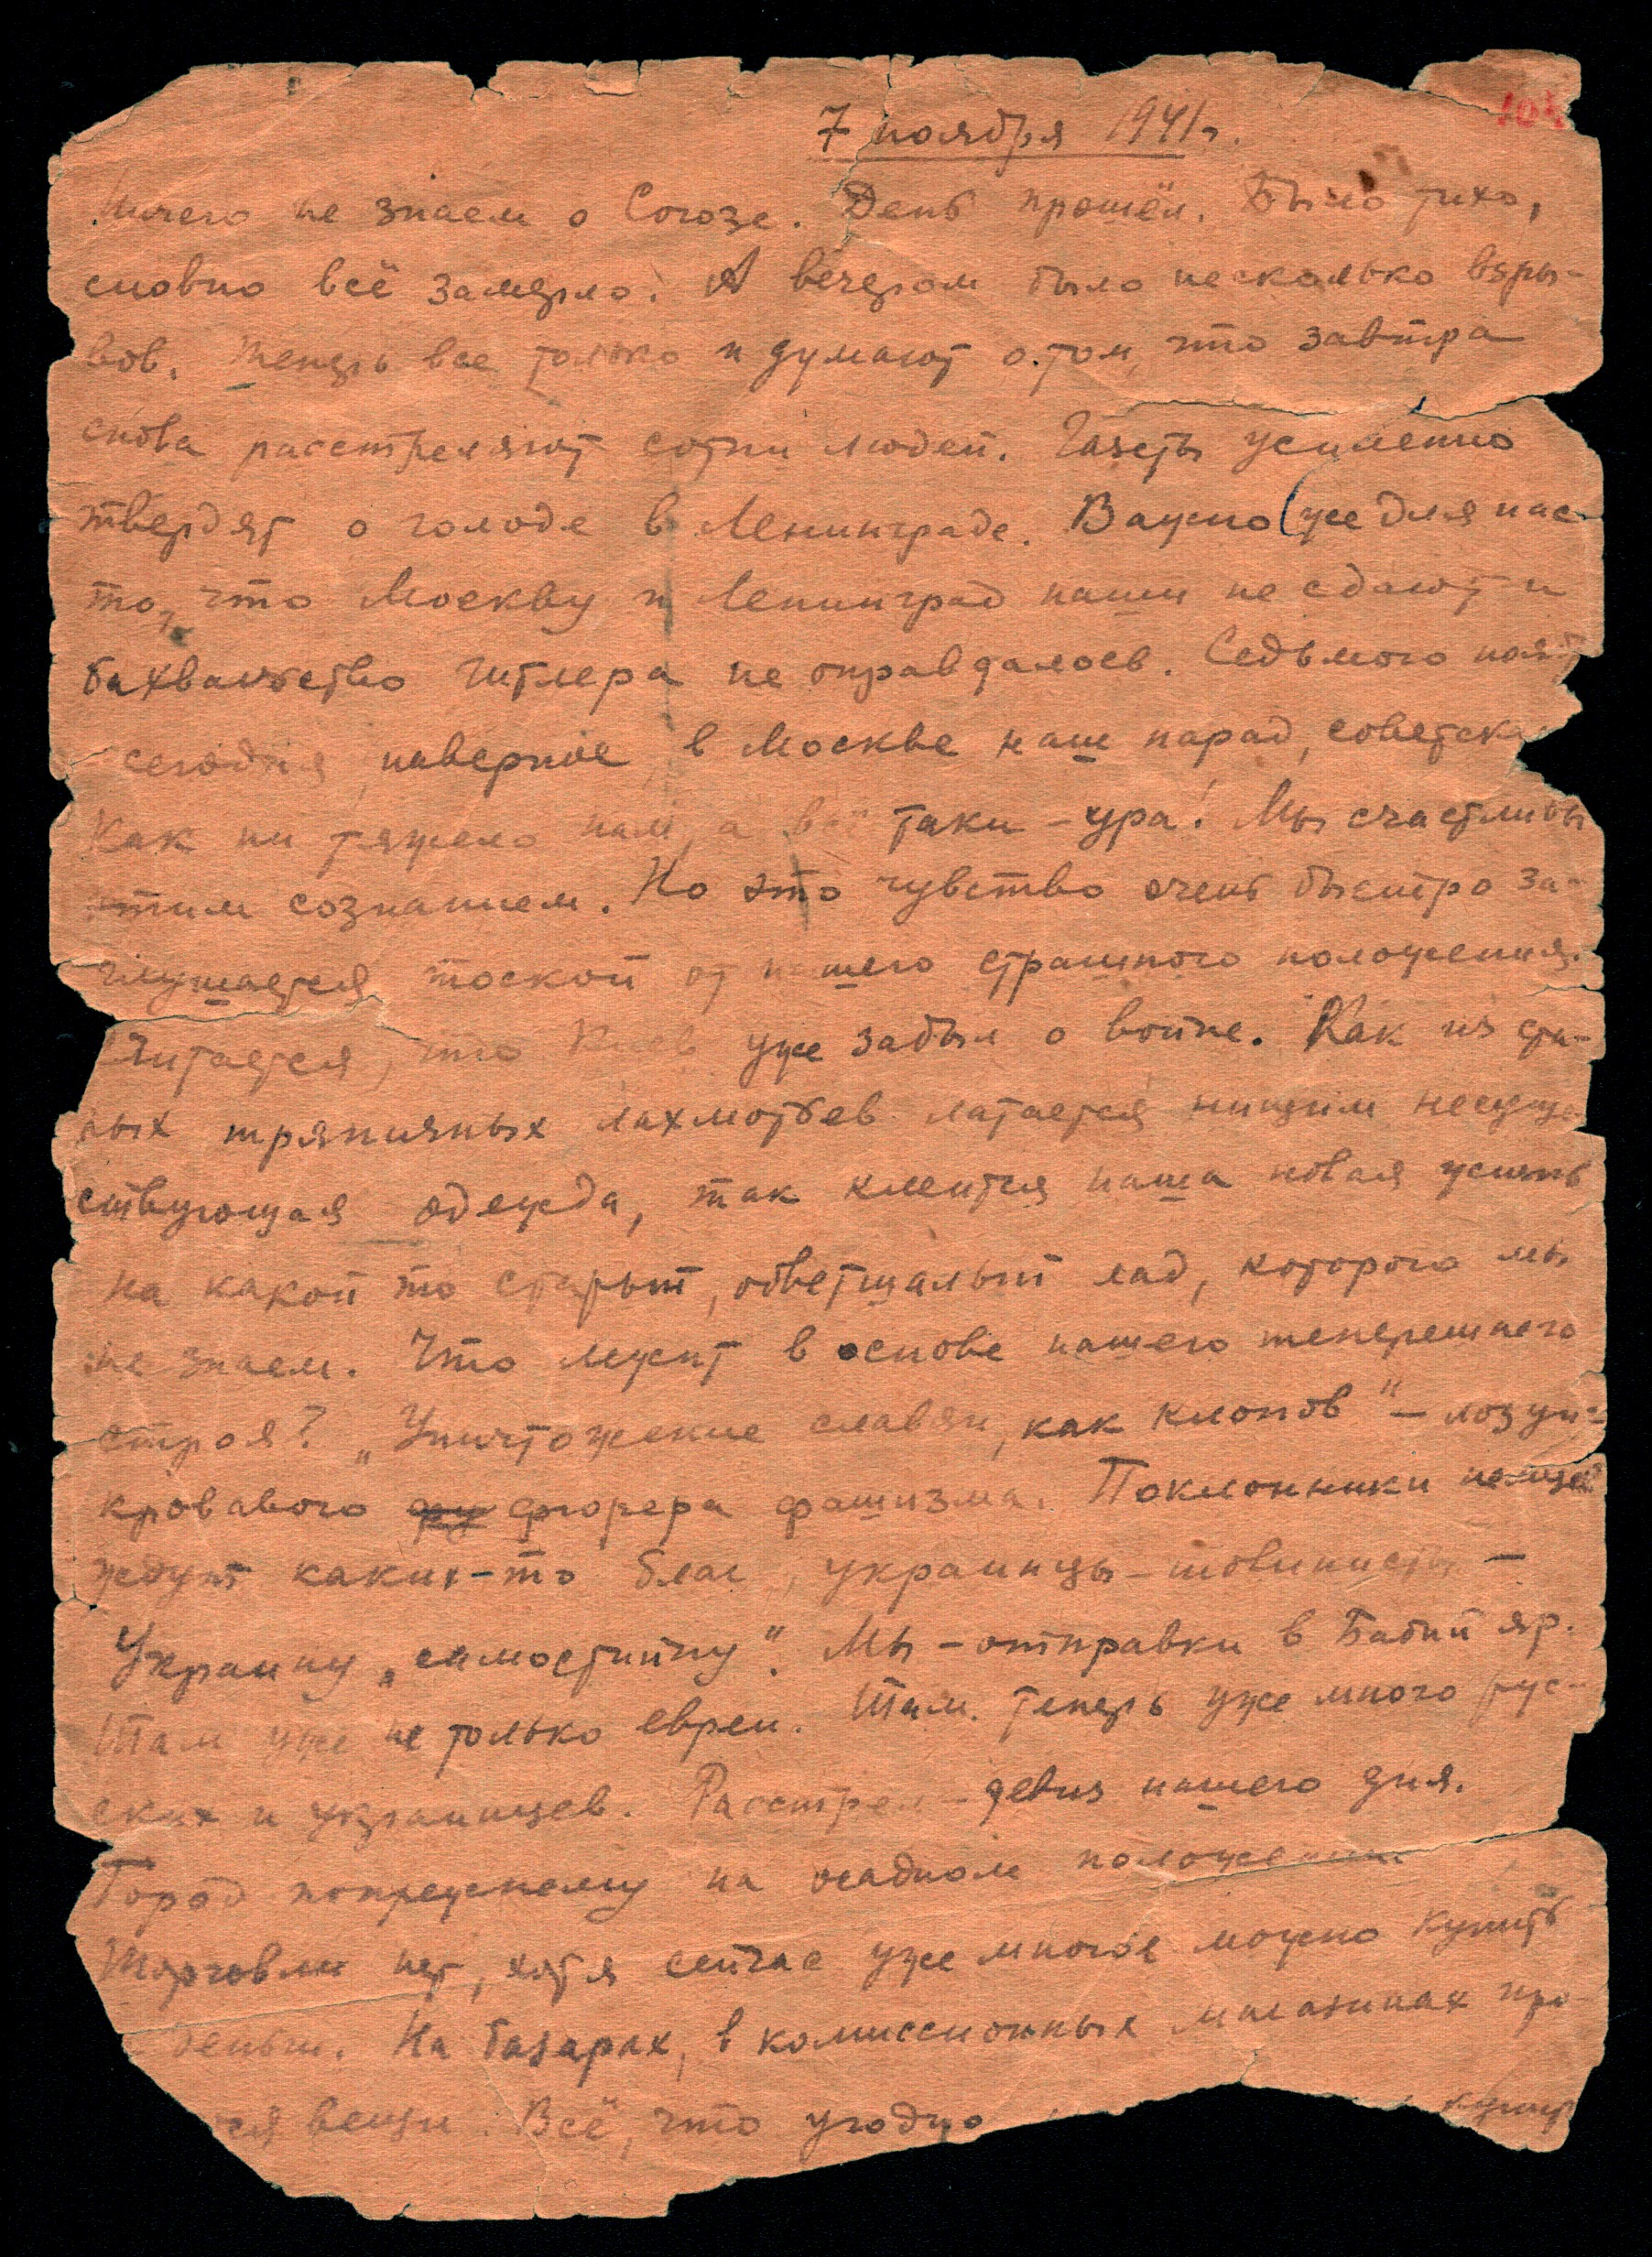 7 ноября 1941 г.
Ничего не знаем о Союзе. День прошёл. Было тихо,
словно всё замерло. А вечером было несколько взры-
вов. Теперь все только и думают о том, что завтра
снова расстреляют сотни людей. Газеты усиленно
твердят о голоде в Ленинграде. Важно (же для нас
то, что Москву и Ленинград наши не сдают и
бахвальство Гитлера не оправдалось. Седьмого нояб
сегодня, наверное, в Москве наш парад, советск
Как ни тяжело нам, а всё таки – ура! Мы счастливы
этим сознанием. Но это чувство очень быстро за-
глушается тоской от нашего страшного положения.
Считается, что Киев уже забыл о войне. Как из ста-
рых тряпичных лахмотьев латается нищим несуще
ствующая одежда, так клеится наша новая жизнь
на какой то старый, обветшалый лад, которого мы
не знаем. Что лежит в основе нашего теперешнего
строя? „Уничтожение славян, как клопов" – лозунг
кровавого фу фюрера фашизма. Поклонники немцев
ждут каких-то благ, украинцы-шовинисты –
Украину „самостийну". Мы – отправки в Бабий яр.
Там уже не только евреи. Там теперь уже много рус-
ских и украинцев. Расстрел – девиз нашего дня.
Город попрежнему на осадном положении
Торговли нет, хотя сейчас уже многое можно купить
деньги. На базарах, в комиссионных магазинах про-
ся вещи. Всё, что угодно